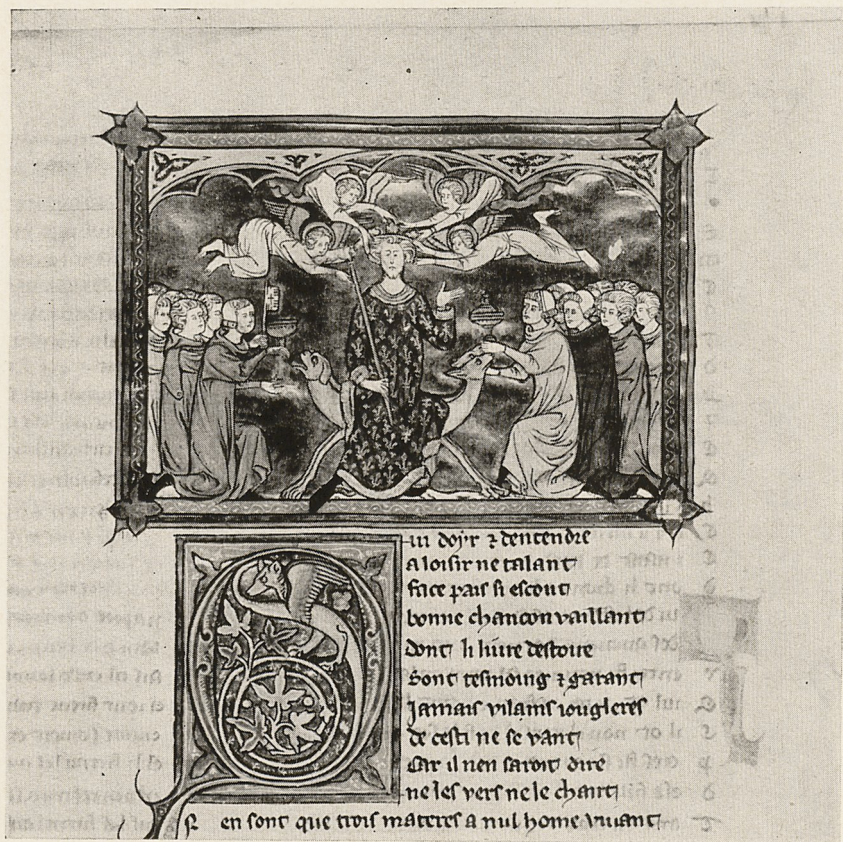 Qui doyr ⁊ dentendre
a loisir ne talant
face pais si escout
bonne chancon vaillant
dont li livre destoire
Sont tesmoing ⁊ garant
Jamais vilains iougleres
de cesti ne se vant
Car il nen saroit dire
ne les vers ne le chant
N en sont que trois materes a nul home vivant